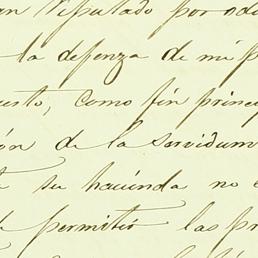 an Diputado por
la defenza de mi p
usto, como fin princi
ón de la servidum
su hacienda no
permitió las pr